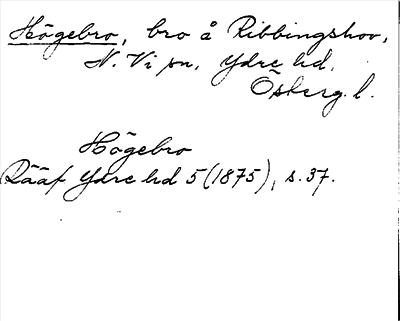 Högebro, bro å Ribbingshov,
N. Vi sn, Ydre hd.
Österg. l.
Högebro
Rääf Ydre hd 5 (1875), s. 37.